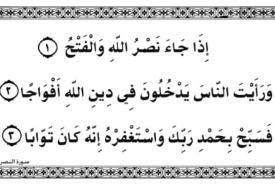 إِذَا جَاءَ نَصْرُ اللَّهِ وَالْفَتْحُ ١
وَرَأَيْتَ النَّاسَ يَدْخُلُونَ فِي دِينِ اللَّهِ أَفْوَاجًا ٢
فَسَبِّحْ بِحَمْدِ رَبِّكَ وَاسْتَغْفِرْهُ إِنَّهُ كَانَ تَوَّابًا ٣
سورة النصر